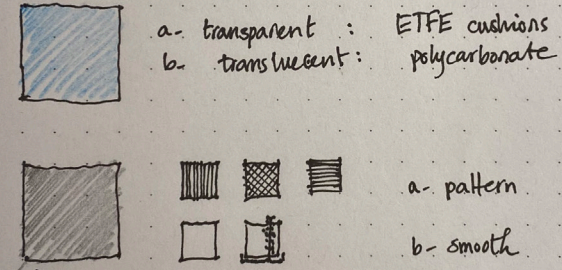 a- transparent : ETFE cushions
b- translucent : polycarbonate
a- pattern
b- smooth